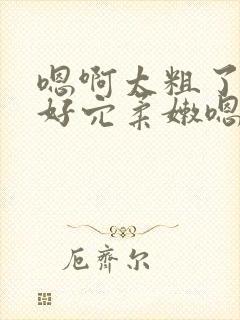 嗯啊太粗了
好穴柔嫩嗯
厄齐尔